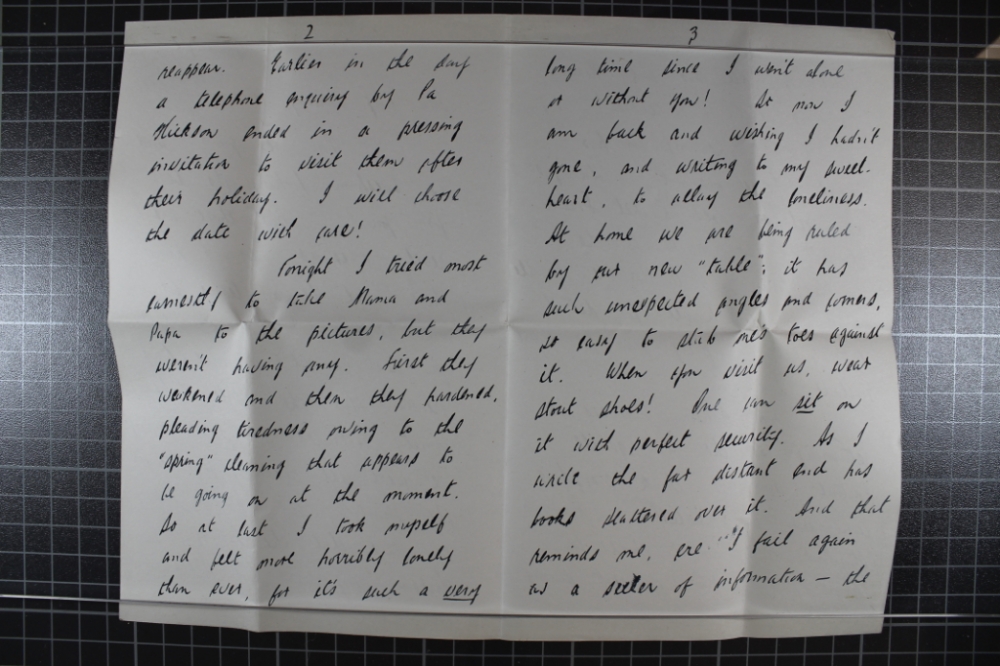 2
reappear. Earlier in the day
a telephone enquiry by Pa
Hickson ended in a pressing
invitation to visit them after
their holiday. I will choose
the date with care!
Tonight I tried most
earnestly to take Mama and
Papa to the pictures, but they
weren't having any. First they
weakened and then they hardened,
pleading tiredness owing to the
"spring" cleaning that appears to
be going on at the moment.
So at last I took myself
and felt more horribly lonely
than ever, for it's such a very
3
long time since I went alone
or without you! So now I
am back and wishing I hadn't
gone, and writing to my sweet-
heart, to allay the loneliness.
At home we are being ruled
by our new "table"; it has
such unexpected angles and corners,
so easy to stub one's toes against
it. When you visit us, wear
stout shoes! One can sit on
it with perfect security. As I
write the far distant end has
books scattered over it. And that
reminds me, ere I fail again
as a seeker of information — the